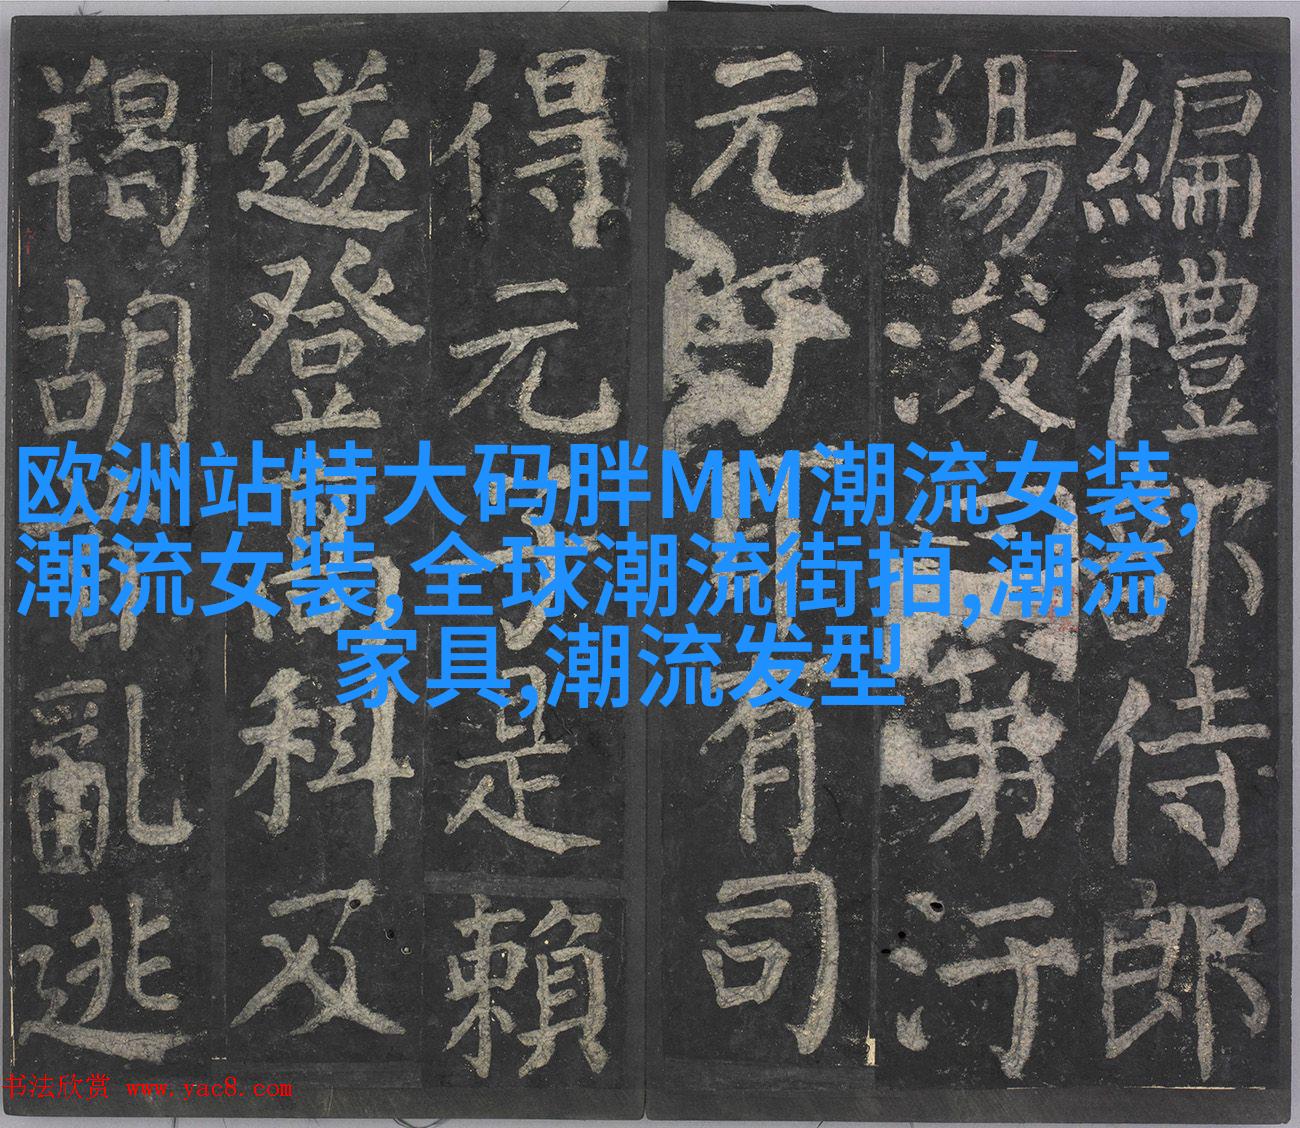 編禮部侍郎
陽浚曰一第汙
元子耳有司
得元子是賴
遂登高科及
羯胡首亂逃
欧洲站特大码胖MM潮流女装,
潮流女装,全球潮流街拍,潮流
家具,潮流发型
书法欣赏 www.yac8.com